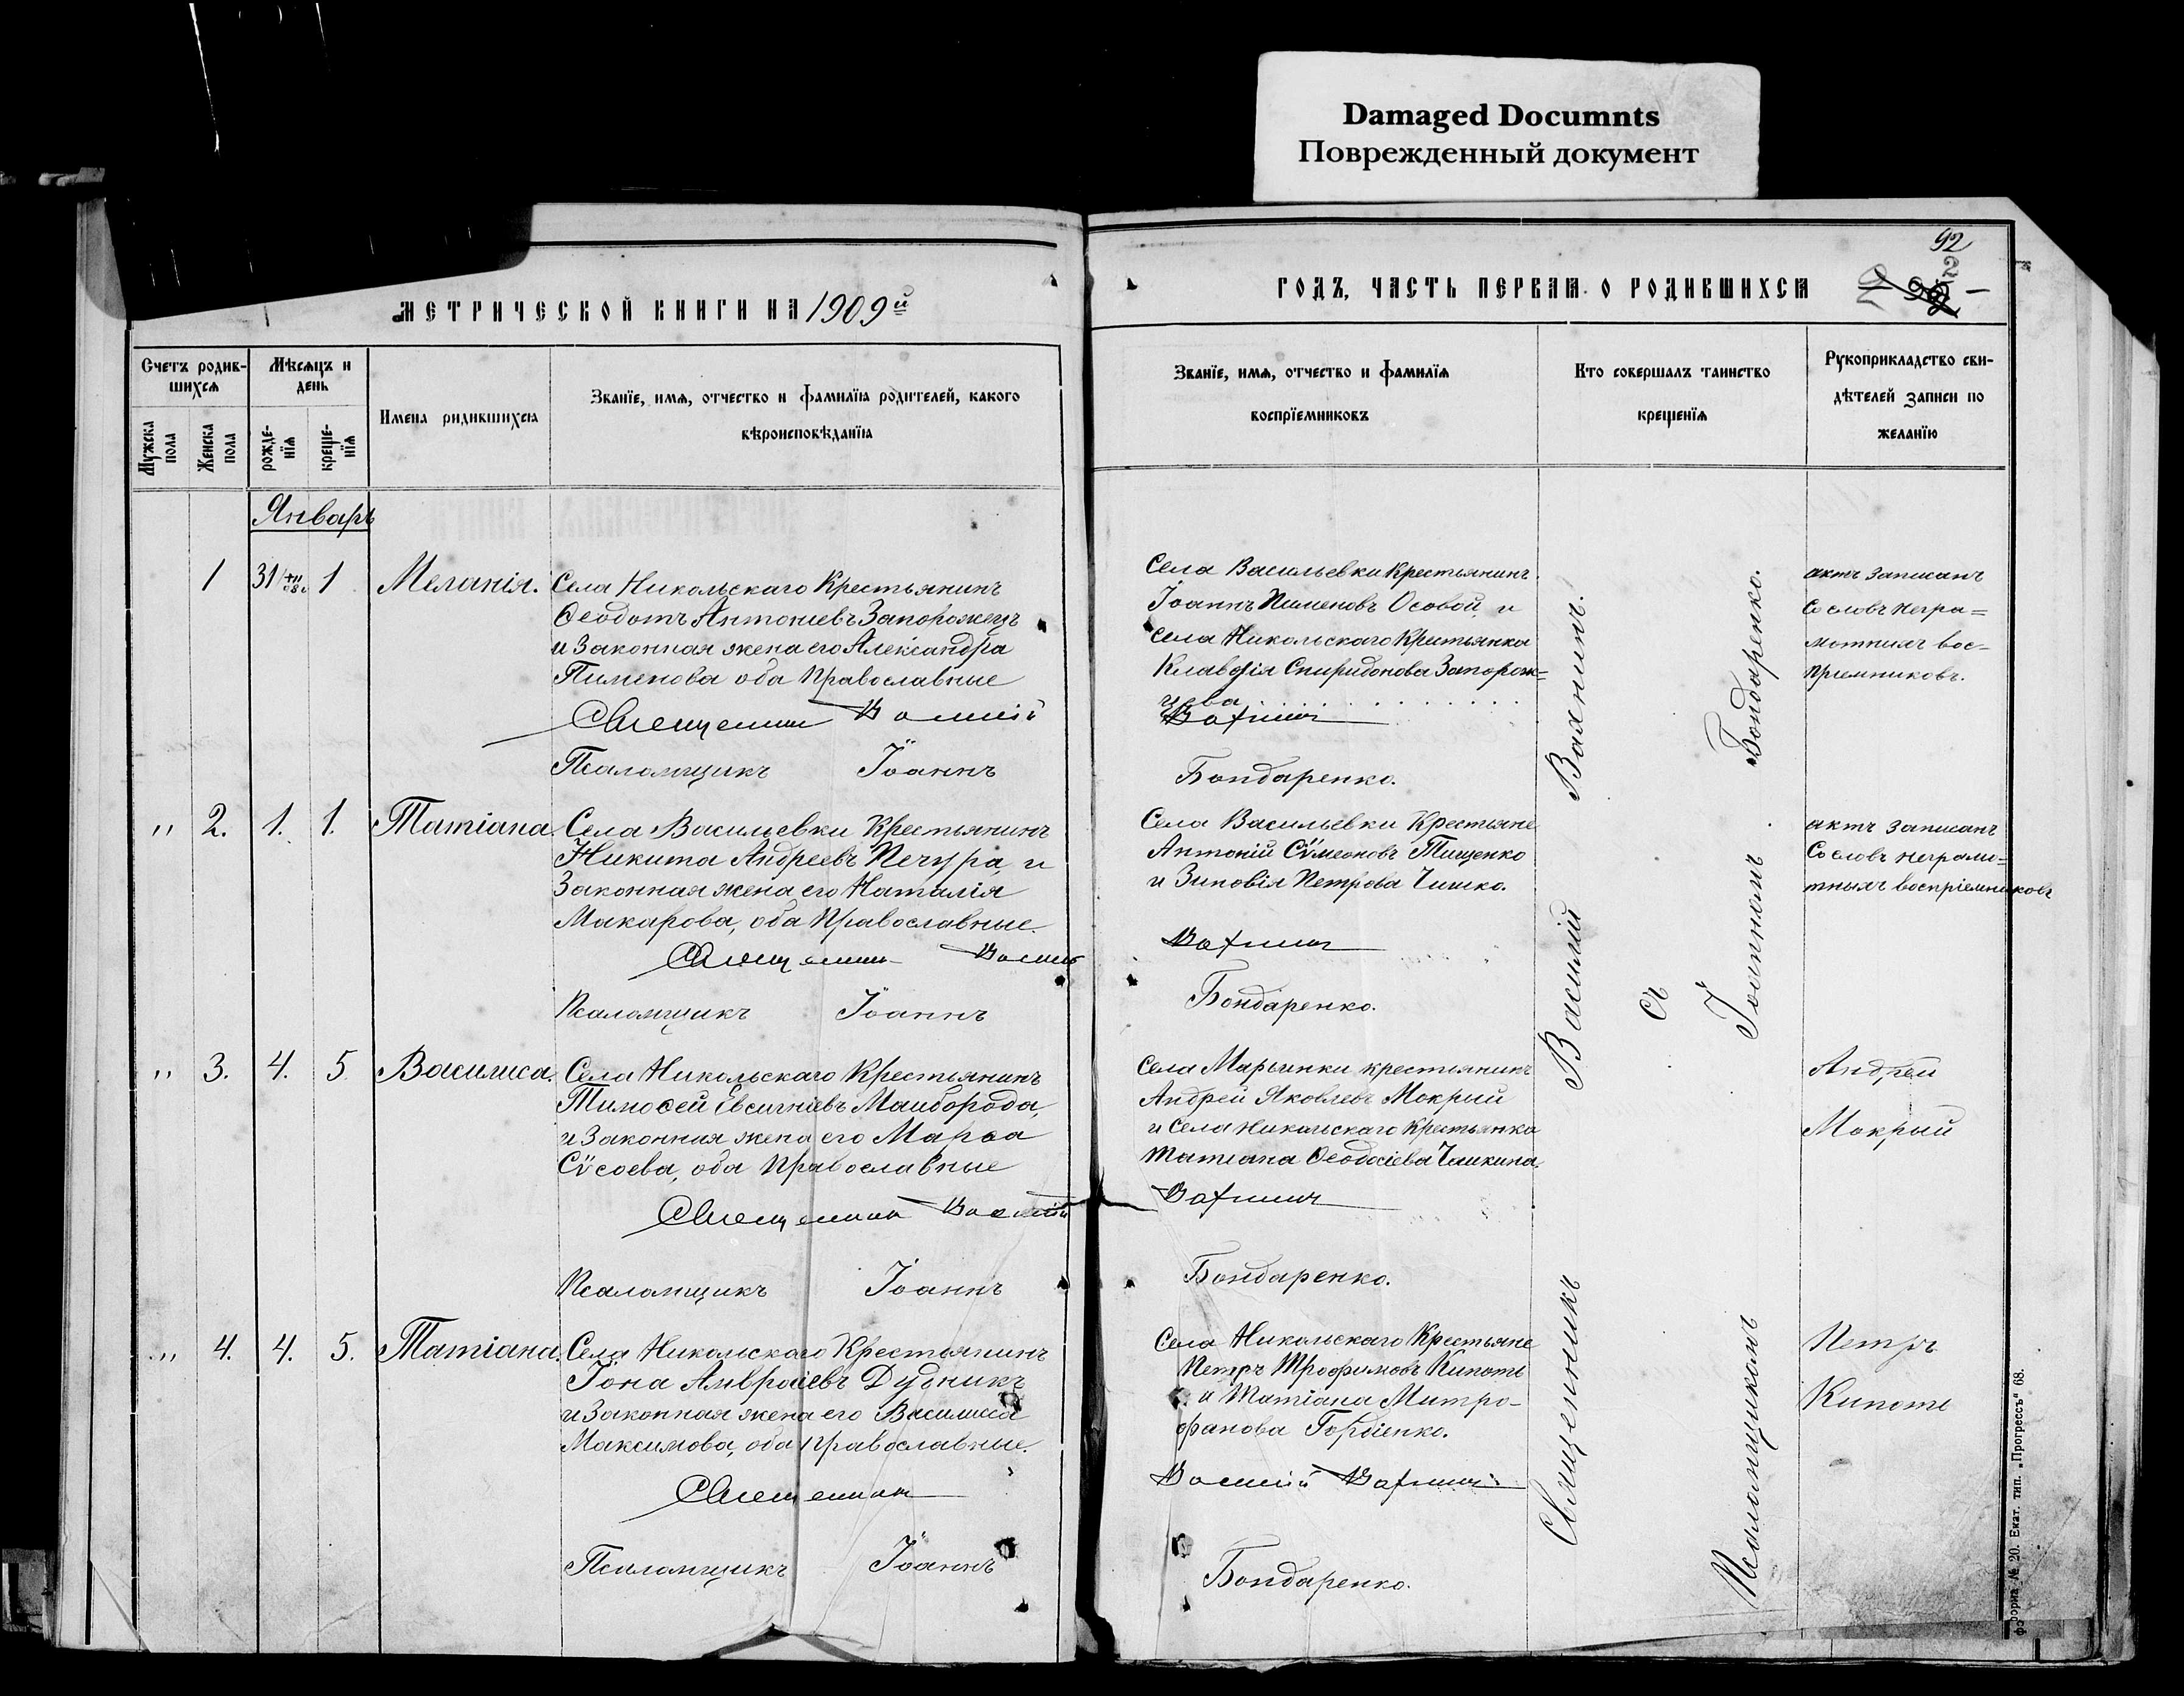 Damaged Documnts
Поврежденный документ
МЕТРИЧЕСКОЙ КНИГИ НА 1909й
Счетъ родив-
шихся
Мѣсяцъ и
день
Мужеска
пола
Женска
пола
рожде-
нія
креще-
нія
Имена родившихся
Званіе, имя, отчество и фамилія родителей, какого
вѣроисповѣданія
Январь
1
31
1
Меланія.
Села Никольскаго Крестьянинъ
Ѳеодотъ Антоніевъ Запорожецъ
и Законная жена его Александра
Пименова оба Православные
Священникъ Василій
Псаломщикъ Іоаннъ
" 2. 1. 1. Татіана.
Села Васильевки Крестьянинъ
Никита Андреевъ Печура, и
Законная жена его Наталія
Макарова, оба Православные.
Священникъ Василій
Псаломщикъ Іоаннъ
" 3. 4. 5 Василиса.
Села Никольскаго Крестьянинъ
Тимоѳей Евсигніевъ Маиборода,
и Законная жена его Марѳа
Сѵсоева, оба Православные
Священникъ Василій
Псаломщикъ Іоаннъ
" 4. 4. 5. Татіана.
Села Никольскаго Крестьянинъ
Іона Амвросіевъ Дудникъ
и Законная жена его Василисса
Максимова, оба православные.
Священникъ
Псаломщикъ Іоаннъ
92
ГОДЪ, ЧАСТЬ ПЕРВАЯ О РОДИВШИХСЯ
Званіе, имя, отчество и фамилія
воспріемниковъ
Кто совершалъ таинство
крещенія
Рукоприкладство сви-
дѣтелей записи по
желанію
Села Васильевки Крестьянинъ
Іоаннъ Пименовъ Особой, и
села Никольскаго Крестьянка
Клавдія Спиридонова Запорож=
цева
Вахнинъ
Бондаренко.
Села Васильевки Крестьяне
Антоній Сѵмеоновъ Тищенко
и Зиновія Петрова Чишко.
Вахнинъ
Бондаренко.
Села Марьинки крестьянинъ
Андрей Яковлевъ Мокрий
и Села Никольскаго Крестьянка
Татіана Ѳеодосіева Чаикина.
Вахнинъ
Бондаренко.
Села Никольскаго Крестьяне
Петръ Трофимовъ Кипоть
и Татіана Митро-
фанова Гордіенко.
Василій Вахнинъ
Бондаренко.
Священникъ Василій Вахнинъ.
съ
Псаломщикомъ Іоанномъ Бондаренко.
актъ записанъ
Со словъ негра=
мотныхъ вос-
пріемниковъ.
актъ записанъ
Со словъ неграмо=
тныхъ воспріемниковъ
Андрей
Мокрый
Петръ
Кипоть
форма № 20. Екат. тип. „Прогрессъ" 68.